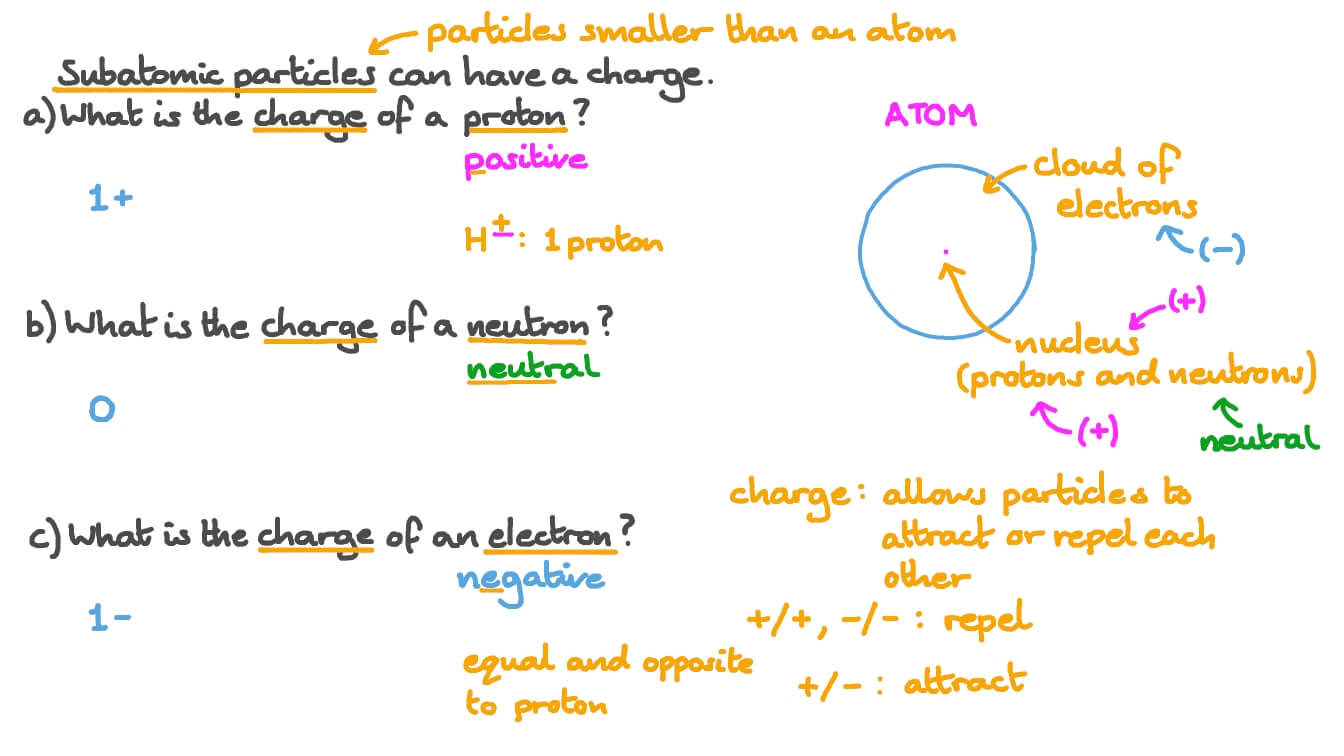 particles smaller than an atom
Subatomic particles can have a charge.
a) What is the charge of a proton?
positive
1+
H⁺: 1 proton
b) What is the charge of a neutron?
neutral
0
c) What is the charge of an electron?
negative
1-
equal and opposite
to proton
ATOM
cloud of
electrons
(-)
(+)
nucleus
(protons and neutrons)
(+)
neutral
charge: allows particles to
attract or repel each
other
+/+, -/- : repel
+/- : attract